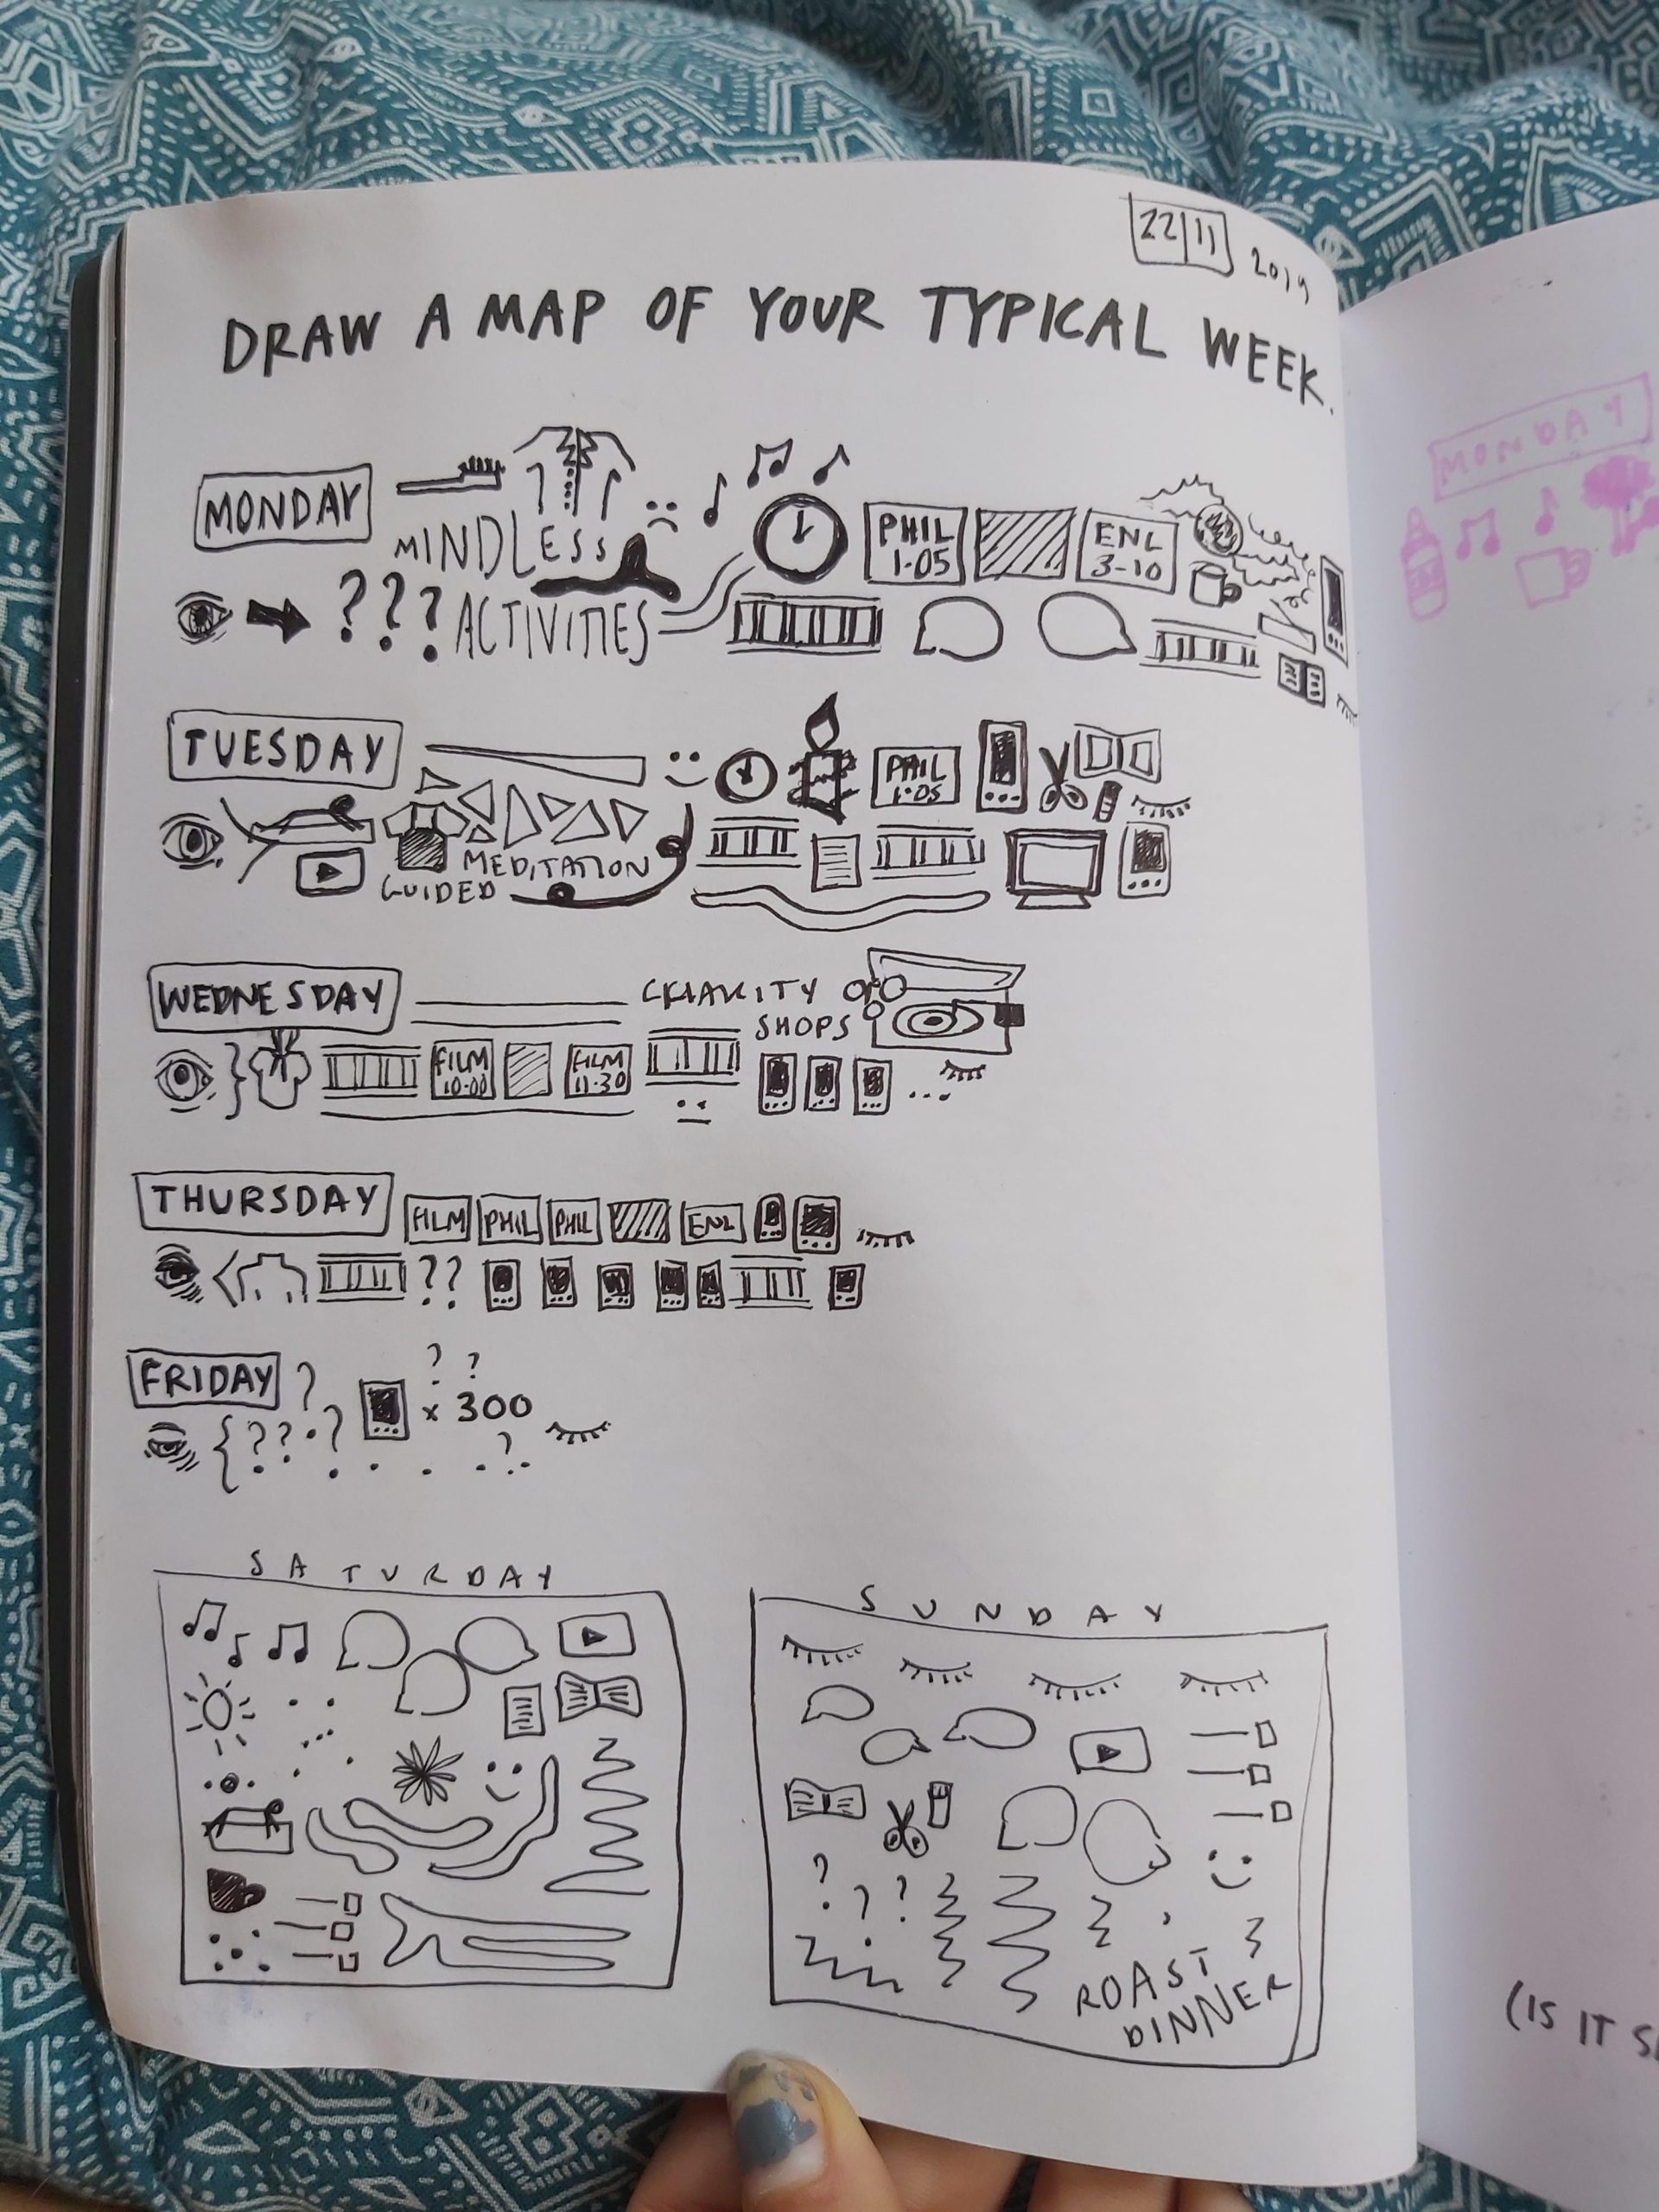 22|11 2019
DRAW A MAP OF YOUR TYPICAL WEEK.
MONDAY
MINDLESS
??? ACTIVITIES
PHIL
1.05
ENL
3-10
TUESDAY
GUIDED MEDITATION
PHIL
1.05
WEDNESDAY
CHARITY
SHOPS
FILM
10.00
FILM
11.30
THURSDAY
FILM PHIL PHIL ENL
??
FRIDAY ?
? ?
x 300
?? ?
?
SATURDAY
SUNDAY
? ? ?
ROAST
DINNER
MONDAY
(IS IT